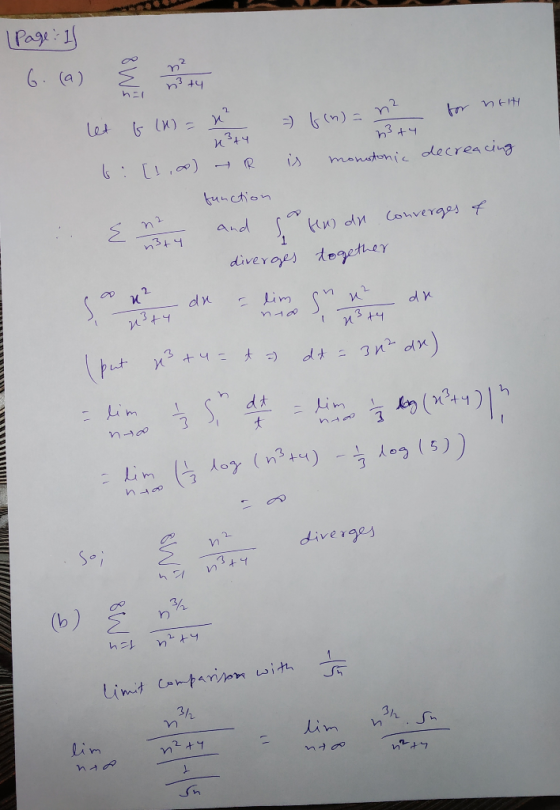 Page:-1
6. (a) ∞ Σ n=1 n²/(n³+4)
Let f(x) = x²/(x³+4) ⇒ f(n) = n²/(n³+4) for n∈ℕ
f : [1,∞) → R is monotonic decreacing
function
∴ Σ n²/(n³+4) and ∫₁^∞ f(x) dx converges &
diverges together
∫₁^∞ x²/(x³+4) dx = lim n→∞ ∫₁ⁿ x²/(x³+4) dx
(put x³+4 = t ⇒ dt = 3x² dx)
= lim n→∞ 1/3 ∫₁ⁿ dt/t = lim n→∞ 1/3 log(x³+4)|₁ⁿ
= lim n→∞ (1/3 log(n³+4) - 1/3 log(5))
= ∞
So; ∞ Σ n=1 n²/(n³+4) diverges
(b) ∞ Σ n=1 n^{3/2}/(n²+4)
limit comparison with 1/√n
lim n→∞ (n^{3/2}/(n²+4))/(1/√n) = lim n→∞ n^{3/2}·√n/(n²+4)